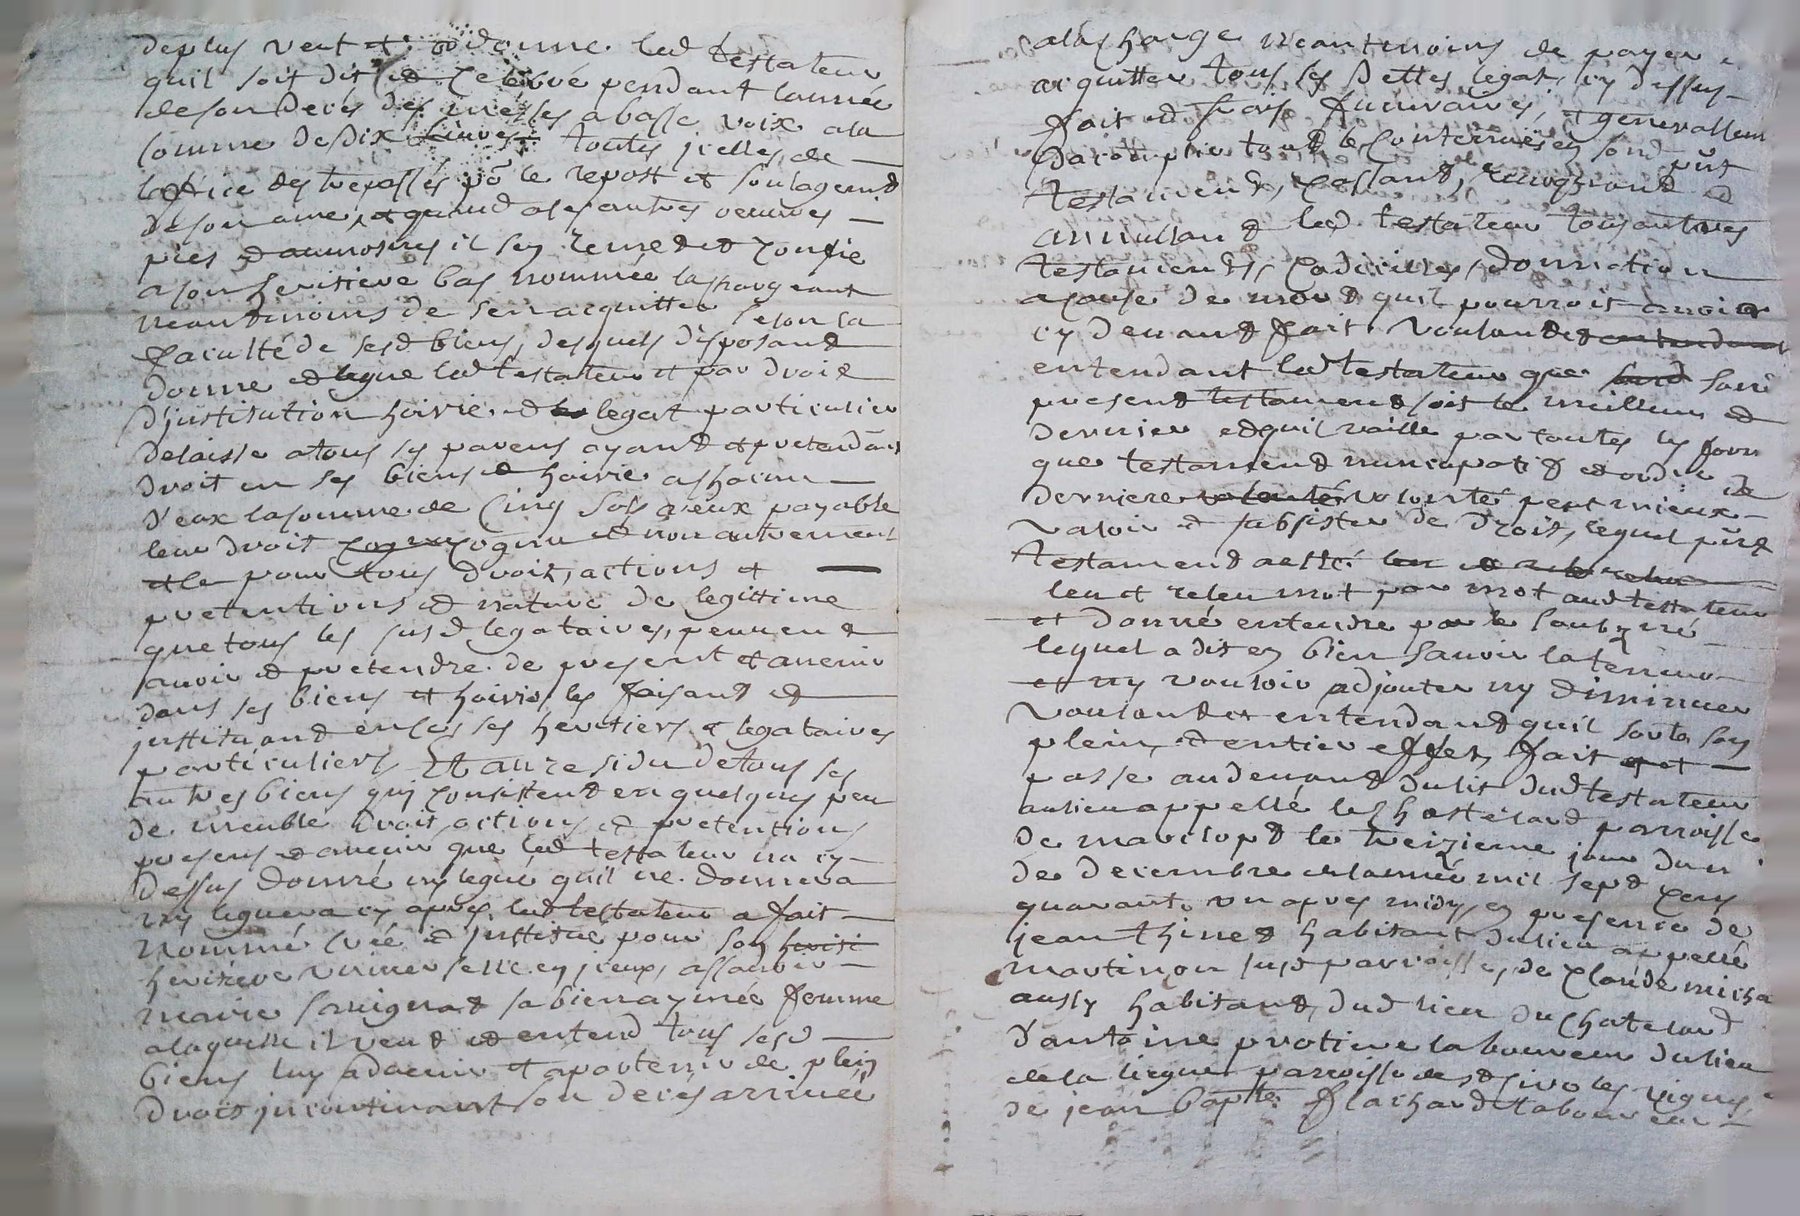 deplus veut et ordonne led testateur
quil soit dit et celebré pendant lannée
deson deces des messes a basse voix ala
somme de dix livres toutes jcelles de
loffice des trepassés po le repost et soulagemt
deson ame, et quand a ses autres oeuvres
pies et aumosnes il sen remet et confie
a son heritiere bas nommée la chargeant
neantmoins de sen acquitter selon sa
faculté de sesd biens, desquels disposant
donne et legue led testateur et par droit
djnstitution hoirie et legat particulier
delaisse atous ses parens ayant et pretendant
droit en ses biens et hoirie a chacun
d'eux la somme de Cinq sols a ieux payable
leur droit cogneu et non autrement
et ce pour tous droits, actions et
pretentions et nature de legittime
que tous les susd legataires, peuvent
avoir et pretendre de present et avenir
dans ses biens et hoirie les faisant et
jnstituant en ce ses heritiers et legataires
particuliers Et au residu de tous ses
autres biens qui consistent en quelques peu
de meuble droit, actions et pretentions
presens et avenir que led testateur na cy
dessus donné ny legué quil ne donnera
ny leguera cy apres, led testateur a fait
nommé créé et jnstitué pour son heriti
heritiere universelle en jceux, assavoir
marie sauignat sa bien aymée femme
a laquelle il veut et entend tous sesd
biens luy advenir et apartenir de plein
droit jncontinant son deces arrivée
ala charge neantmoins de payer
acquitter tous ses dettes legats cy dessus
fait et frais funeraires, et generallemt
daccomplir tout le contenu en sond pnt
testament, cassant, revoquant et
annullant led testateur tous autres
testaments, codicilles, donnation
a cause de mort quil pourroit avoir
cy devant fait voulant et entendant
entendant led testateur que sond son
present testament soit le meilleur et
dernier et quil vaille par toutes les form
que testament nuncupatif et ordre de
derniere volonté volonté peut mieux
valoir et subsister de droit, lequel pnt
testament a esté
leu et releu mot par mot aud testateur
et donné entendre par le soubzné
lequel a dit en bien savoir la teneur
et ny vouloir adjouter ny diminuer
voulant et entendant quil sorte son
plein et entier effet, fait et
passe au devant du lit dud testateur
au lieu appellé le Chastelard parroisse
de marclopt le treizieme jour du
de decembre et lannée mil sept cens
quarante un apres midy, en presence de
jean thinet habitant du lieu appellé
martinon susd parroisse, de Claude micha
aussy habitant, dud lieu du Chatelard
d'antoine protiere laboureur du lieu
de la liegue parroisse de st Cire les vignes
de jean bapte flachard laboureur